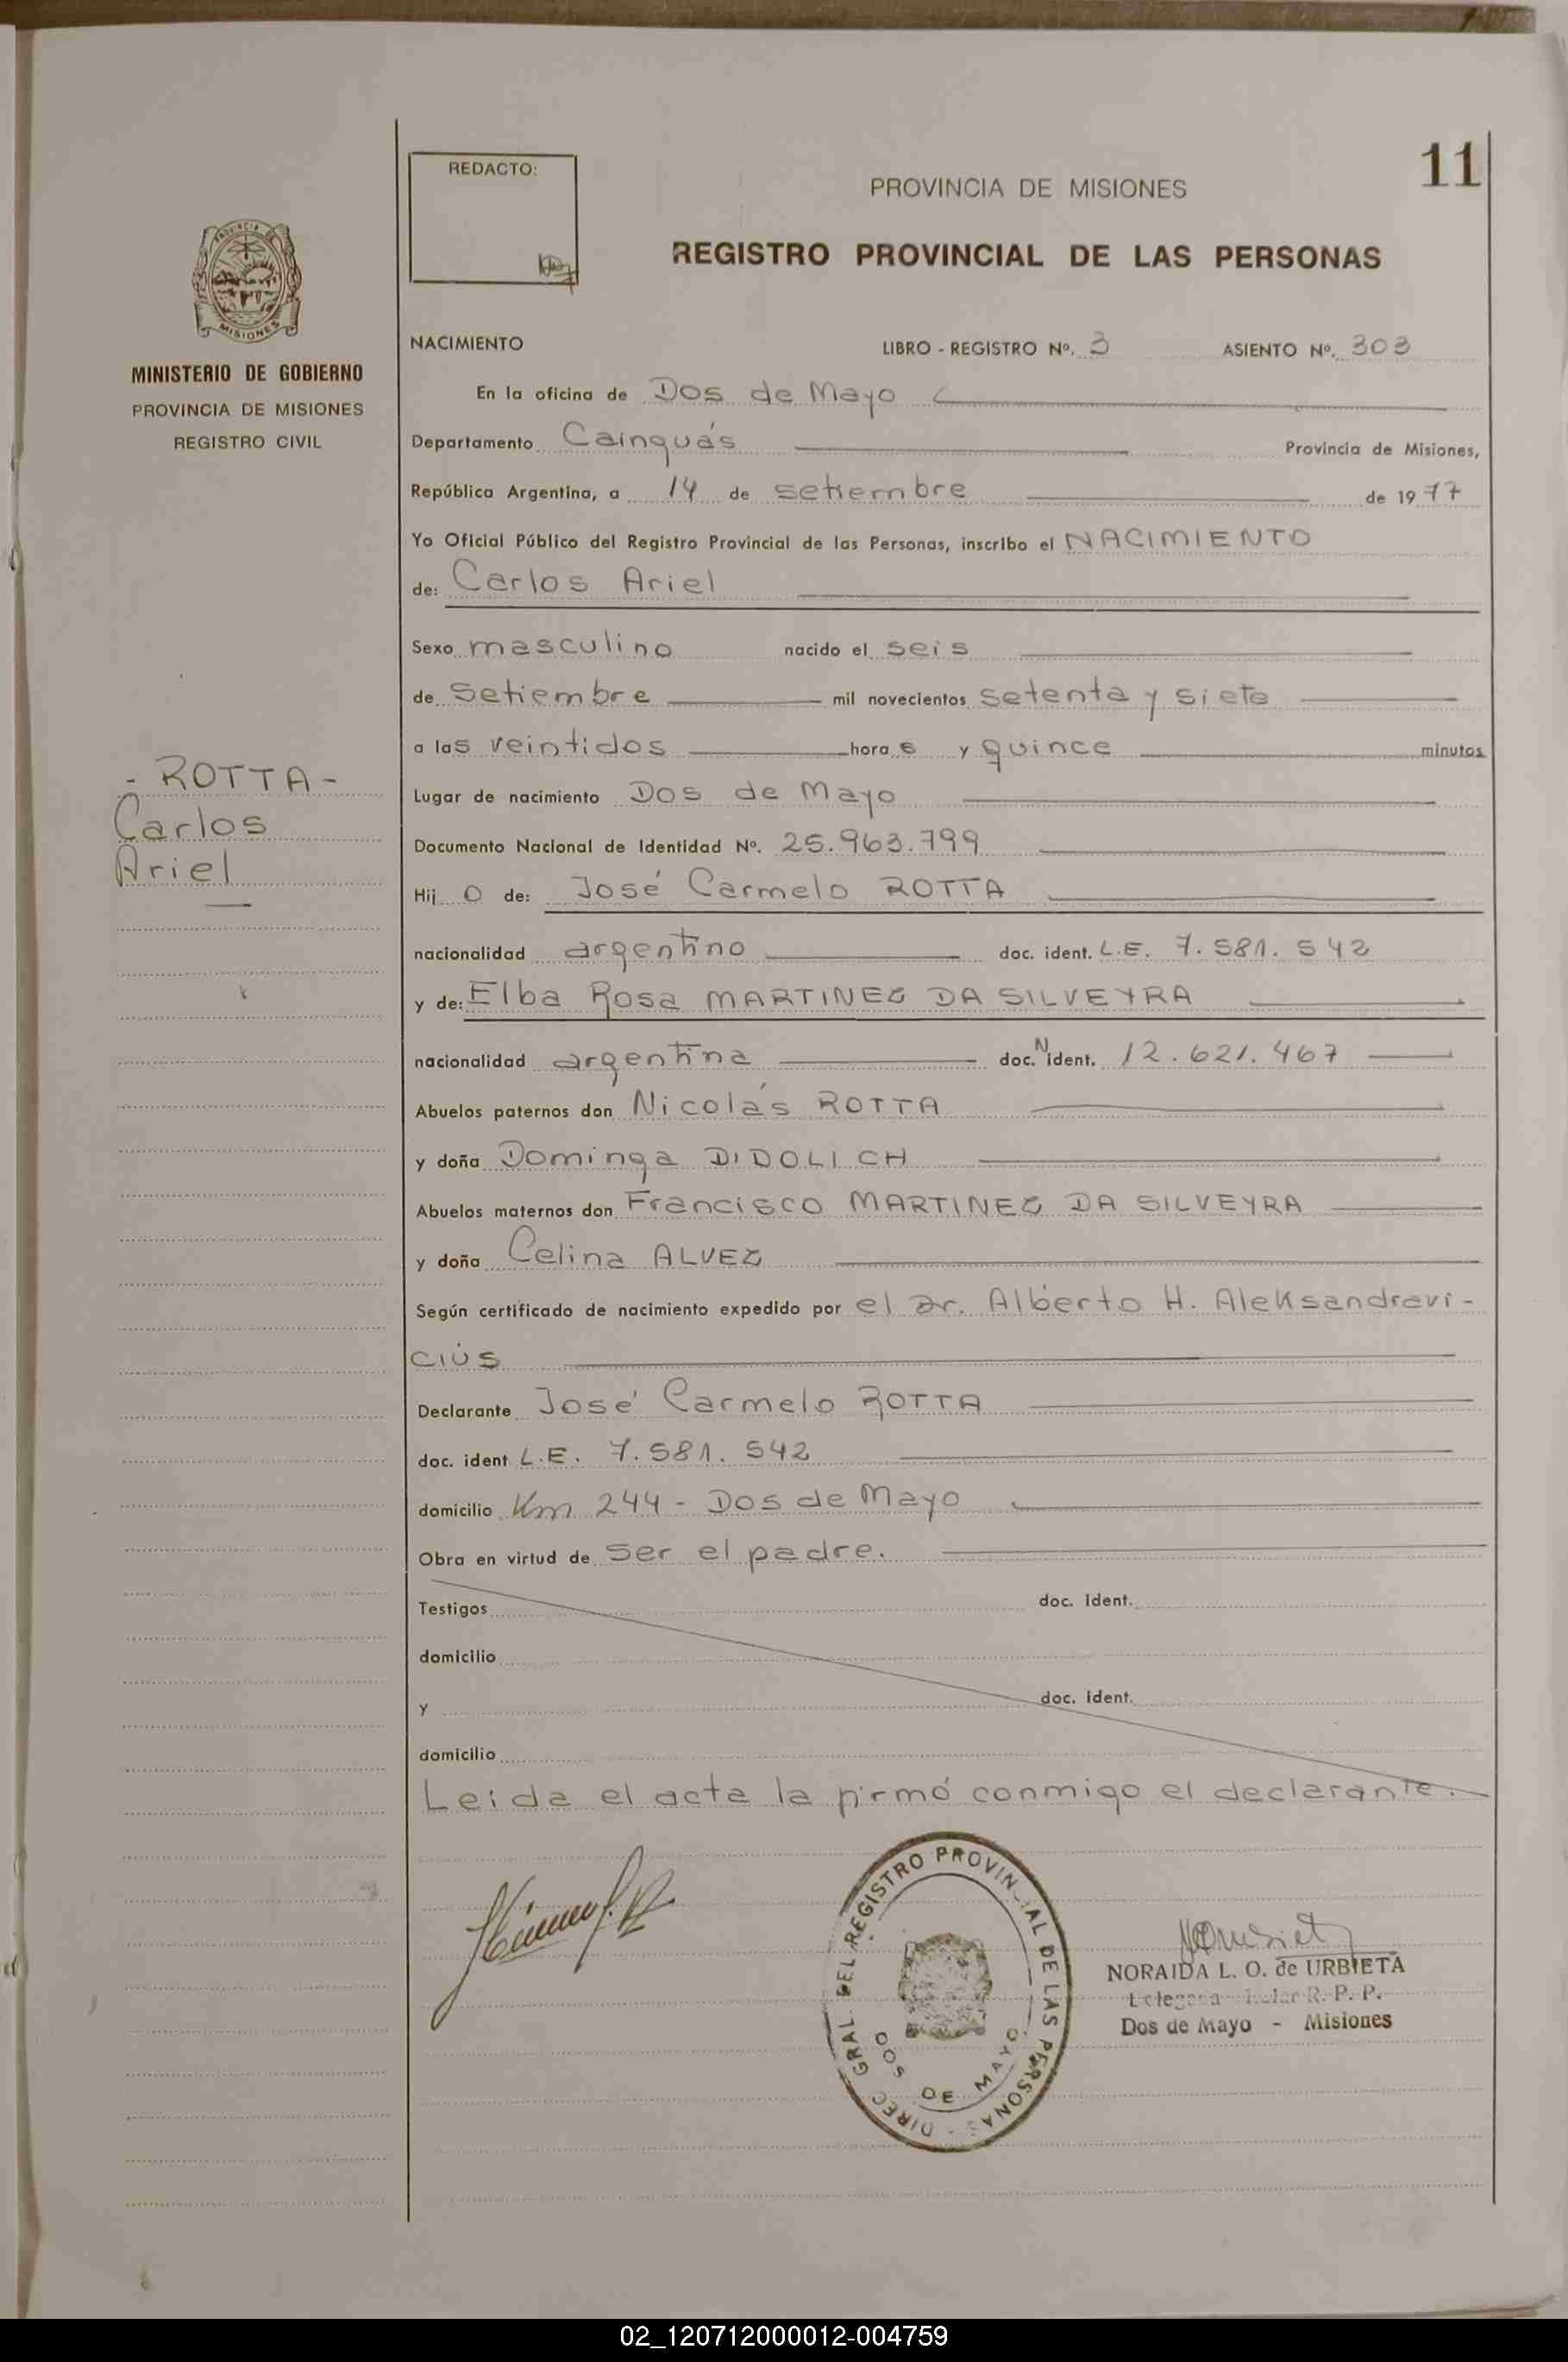 11
REDACTO:
PROVINCIA DE MISIONES
REGISTRO PROVINCIAL DE LAS PERSONAS
MISIONES
MINISTERIO DE GOBIERNO
PROVINCIA DE MISIONES
REGISTRO CIVIL
- ROTTA -
Carlos
Ariel
NACIMIENTO LIBRO - REGISTRO Nº. 3 ASIENTO Nº. 303
En la oficina de Dos de Mayo
Departamento Cainguás Provincia de Misiones,
República Argentina, a 14 de setiembre de 1977
Yo Oficial Público del Registro Provincial de las Personas, inscribo el NACIMIENTO
de: Carlos Ariel
Sexo masculino nacido el seis
de setiembre mil novecientos setenta y siete
a las veintidos hora s y quince minutos
Lugar de nacimiento Dos de Mayo
Documento Nacional de Identidad Nº. 25.963.799
Hij o de: José Carmelo ROTTA
nacionalidad argentino doc. ident. L.E. 7.581.542
y de: Elba Rosa MARTINEZ DA SILVEYRA
nacionalidad argentina doc. N ident. 12.621.467
Abuelos paternos don Nicolás ROTTA
y doña Dominga DIDOLICH
Abuelos maternos don Francisco MARTINEZ DA SILVEYRA
y doña Celina ALVEZ
Según certificado de nacimiento expedido por el Dr. Alberto H. Aleksandravi-
cius
Declarante José Carmelo ROTTA
doc. ident L.E. 7.581.542
domicilio Km 244 - Dos de Mayo
Obra en virtud de ser el padre.
Testigos doc. ident.
domicilio
y doc. ident.
domicilio
Leida el acta la firmó conmigo el declarante.
DIREC GRAL DEL REGISTRO PROVINCIAL DE LAS PERSONAS -
DOS DE MAYO
NORAIDA L. O. de URBIETA
R. P. P.
Dos de Mayo - Misiones
02_120712000012-004759